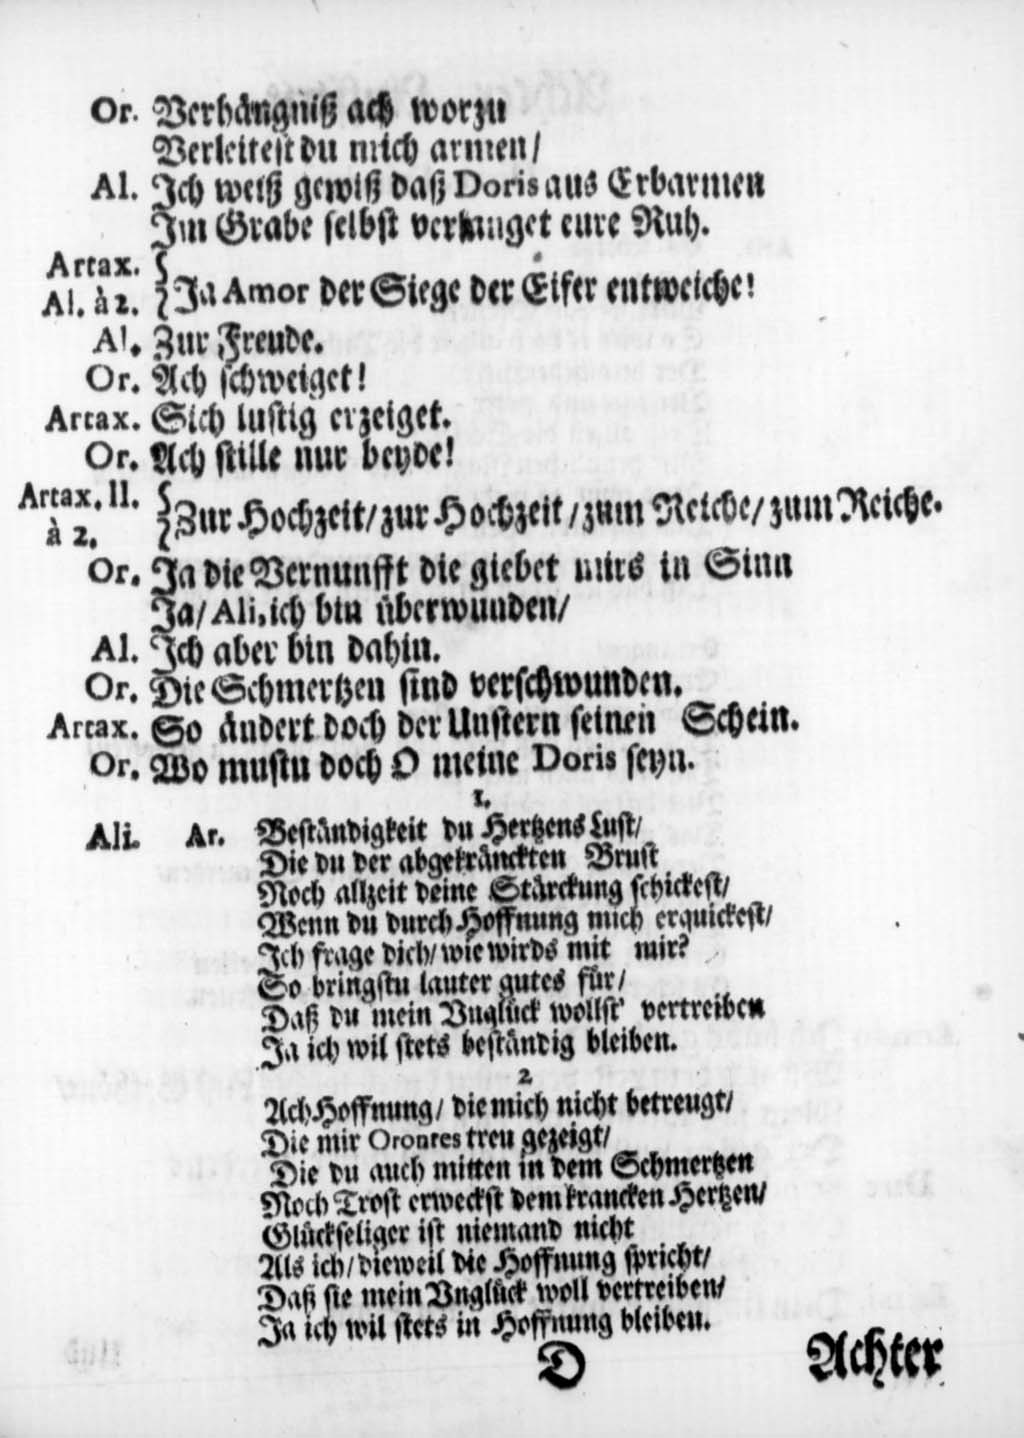 Or. Verhängniß ach worzu
Verleitest du mich armen/
Al. Ich weiß gewiß daß Doris aus Erbarmen
Im Grabe selbst verlanget eure Ruh.
Artax.
Al. à 2. Ja Amor der Siege der Eifer entweiche!
Al. Zur Freude.
Or. Ach schweiget!
Artax. Sich lustig erzeiget.
Or. Ach stille nur beyde!
Artax. Il.
à 2. Zur Hochzeit/ zur Hochzeit/ zum Reiche/ zum Reiche.
Or. Ja die Vernunfft die giebet mirs in Sinn
Ja/ Ali, ich bin überwunden/
Al. Ich aber bin dahin.
Or. Die Schmertzen sind verschwunden.
Artax. So ändert doch der Unstern seinen Schein.
Or. Wo mustu doch O meine Doris seyn.
1.
Ali. Ar. Beständigkeit du Hertzens Lust/
Die du der abgekränckten Brust
Noch allzeit deine Stärckung schickest/
Wenn du durch Hoffnung mich erquickest/
Ich frage dich/ wie wirds mit mir?
So bringstu lauter gutes für/
Daß du mein Vnglück wollst vertreiben
Ja ich wil stets beständig bleiben.
2
Ach Hoffnung/ die mich nicht betreugt/
Die mir Orontes treu gezeigt/
Die du auch mitten in dem Schmertzen
Noch Trost erweckst dem krancken Hertzen/
Glückseliger ist niemand nicht
Als ich/ dieweil die Hoffnung spricht/
Daß sie mein Vnglück woll vertreiben/
Ja ich wil stets in Hoffnung bleiben.
D Achter